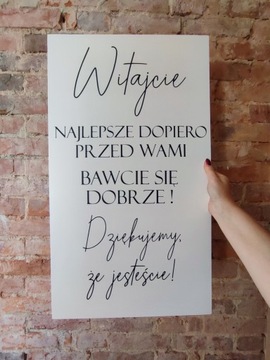 Witajcie
NAJLEPSZE DOPIERO
PRZED WAMI
BAWCIE SIĘ
DOBRZE !
Dziękujemy,
że jesteście!